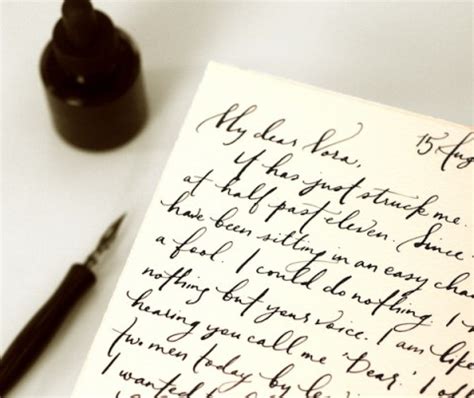 15 Aug
My dear Nora,
It has just struck me.
at half past eleven. Since
have been sitting in an easy chai
a fool. I could do nothing. I
nothing but your voice. I am like
hearing you call me 'Dear.' I
two men today by
I wanted